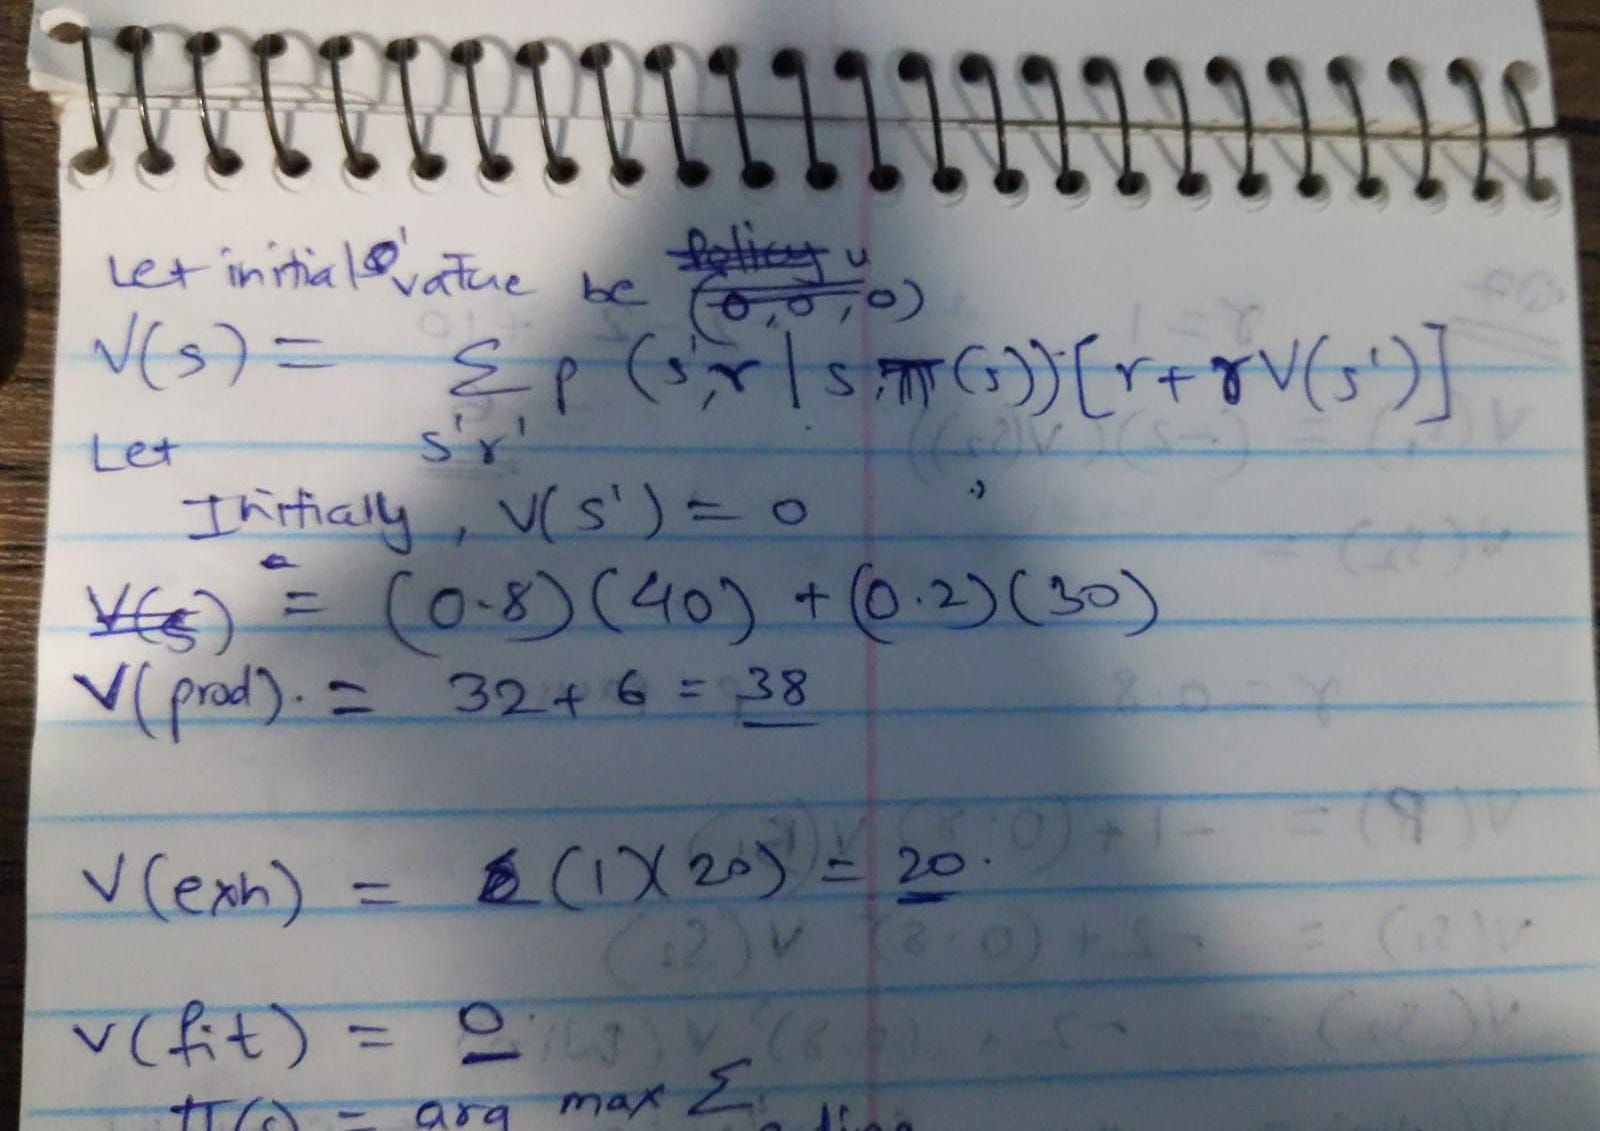 Let initial value be (0,0,0)
V(s) = Σ p (s',r | s,π(s)) [r + γV(s')]
Let s'r'
Initially, V(s') = 0
V(s) = (0.8)(40) + (0.2)(30)
V(prod). = 32 + 6 = 38
V(exh) = (1)(20) = 20.
V(fit) = 0
π(s) = arg max Σ